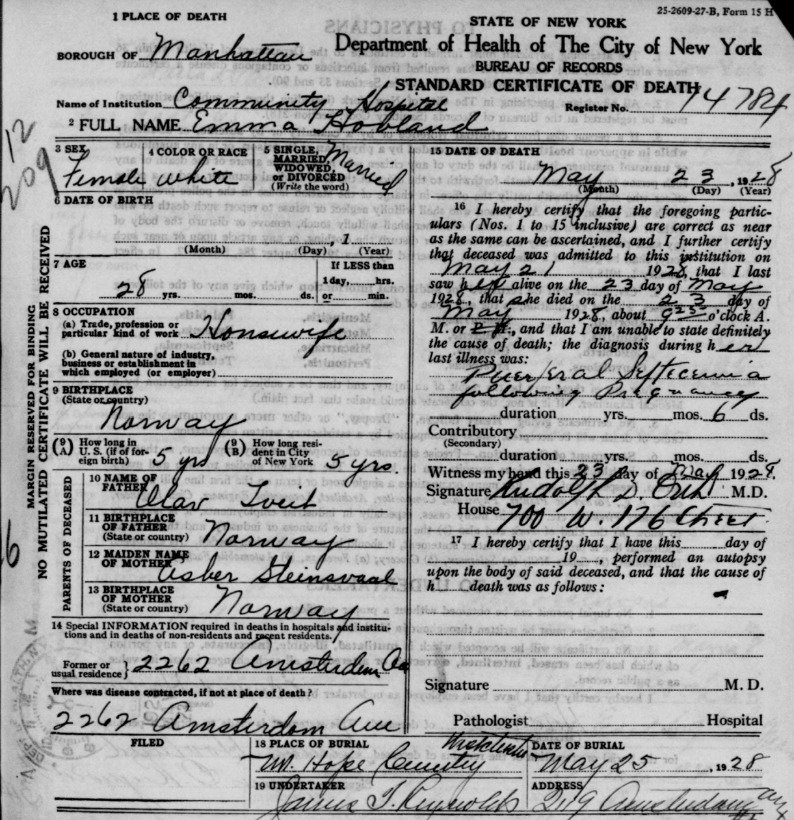 25-2609-27-B, Form 15 H
1 PLACE OF DEATH
STATE OF NEW YORK
BOROUGH OF Manhattan
Department of Health of The City of New York
BUREAU OF RECORDS
STANDARD CERTIFICATE OF DEATH
Name of Institution Community Hospital
Register No. 14784
2 FULL NAME Emma Hovland
12
209
3 SEX
Female
4 COLOR OR RACE
White
5 SINGLE, MARRIED, WIDOWED, or DIVORCED (Write the word)
Married
6 DATE OF BIRTH
, 1
(Month) (Day) (Year)
7 AGE
28 yrs. mos. ds.
If LESS than
1 day, hrs.
or min.
8 OCCUPATION
(a) Trade, profession or
particular kind of work Housewife
(b) General nature of industry,
business or establishment in
which employed (or employer)
9 BIRTHPLACE
(State or country)
Norway
(9 A) How long in U. S. (if of foreign birth) 5 yrs
(9 B) How long resident in City of New York 5 yrs.
PARENTS OF DECEASED
10 NAME OF
FATHER Olav Tveit
11 BIRTHPLACE
OF FATHER
(State or country) Norway
12 MAIDEN NAME
OF MOTHER Asber Steinsvaal
13 BIRTHPLACE
OF MOTHER
(State or country) Norway
14 Special INFORMATION required in deaths in hospitals and institu-
tions and in deaths of non-residents and recent residents.
Former or
usual residence } 2262 Amsterdam Av
Where was disease contracted, if not at place of death?
2262 Amsterdam Ave
FILED
MARGIN RESERVED FOR BINDING
NO MUTILATED CERTIFICATE WILL BE RECEIVED
15 DATE OF DEATH
May 23, 1928
(Month) (Day) (Year)
16 I hereby certify that the foregoing partic-
ulars (Nos. 1 to 15 inclusive) are correct as near
as the same can be ascertained, and I further certify
that deceased was admitted to this institution on
May 21 1928, that I last
saw her alive on the 23 day of May
1928, that she died on the 23 day of
May 1928, about 9 25 o'clock A.
M. or P. M., and that I am unable to state definitely
the cause of death; the diagnosis during her
last illness was:
Puerperal Septicemia
following Pregnancy
duration yrs. mos. 6 ds.
Contributory
(Secondary)
duration yrs. mos. ds.
Witness my hand this 23 day of May 1928.
Signature Rudolph D. M.D.
House 700 W. 176 Street
17 I hereby certify that I have this day of
19 , performed an autopsy
upon the body of said deceased, and that the cause of
h death was as follows:
Signature M. D.
Pathologist Hospital
18 PLACE OF BURIAL
Mt. Hope Cemetery
DATE OF BURIAL
May 25, 1928
19 UNDERTAKER
James T. Reynolds
ADDRESS
Amsterdam